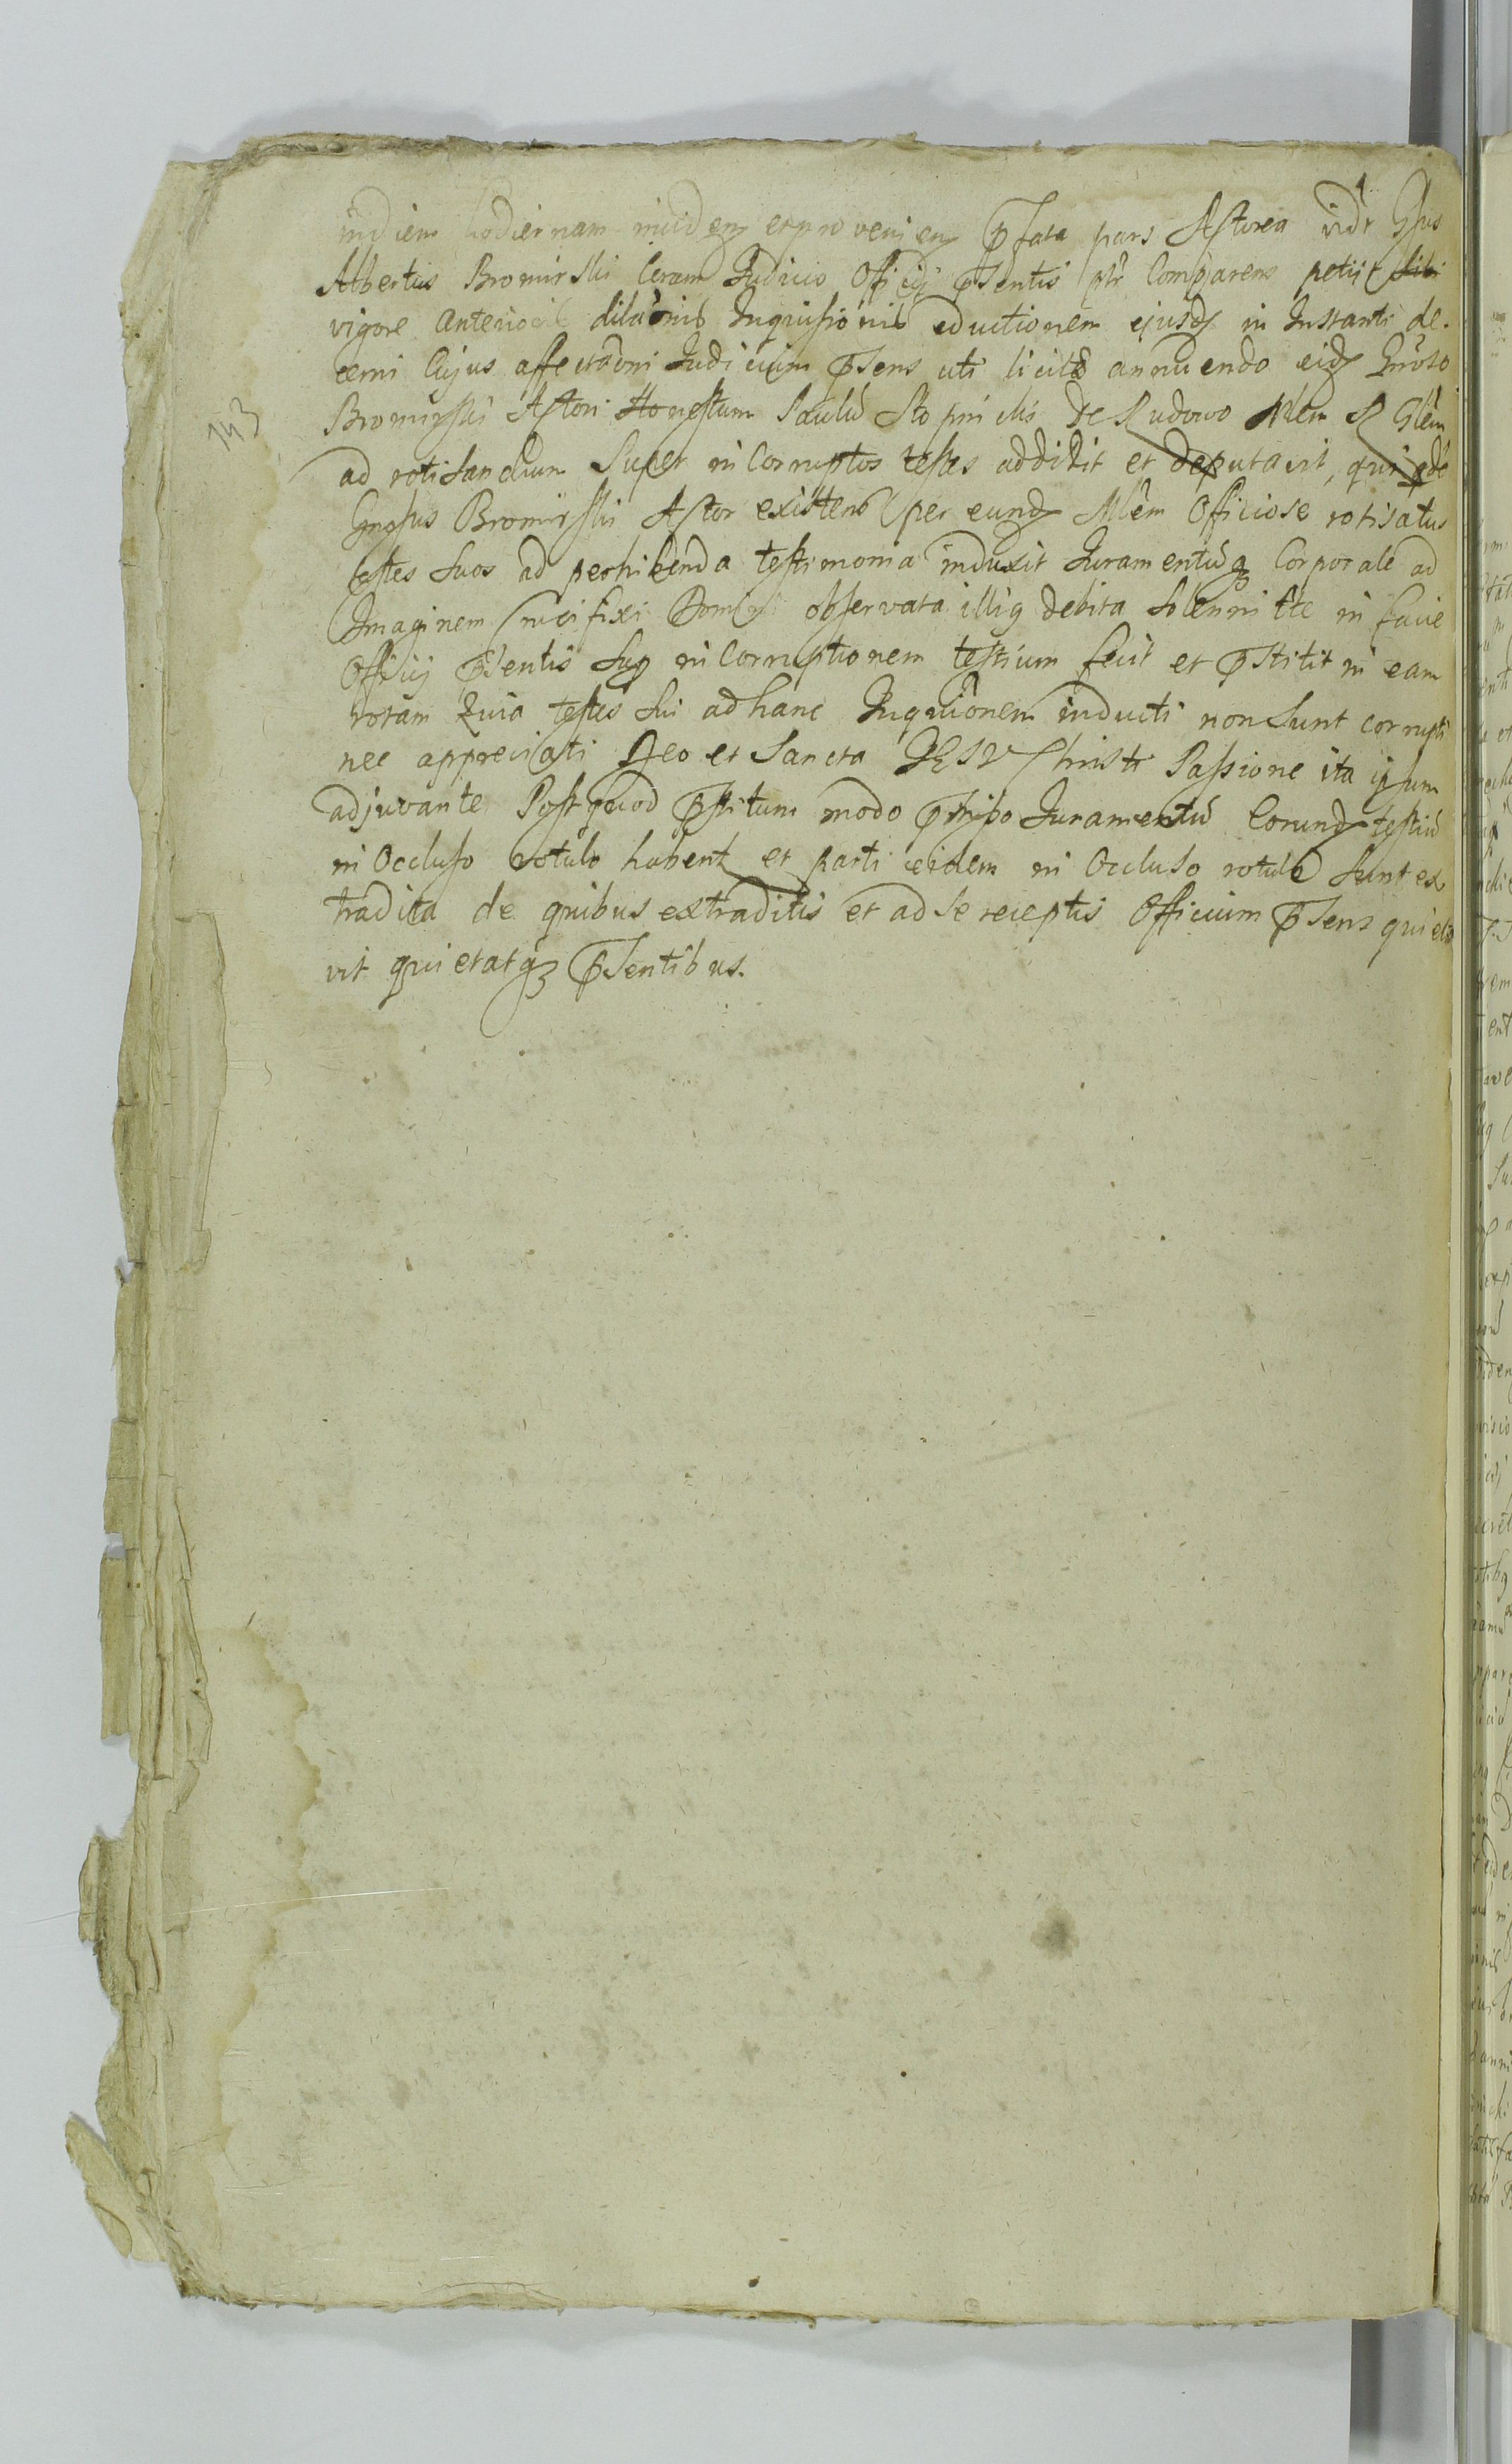 indiem hodiernam inciden et proveniens pfata pars Actorea vidt Gsus
Albertus Bromirski Coram Judicio Officij pSentis ptr Comparens petiit sibi
vigore anterioris dilaonis Inquisionis eductionem ejusd in Instanti de-
cerni Cujus affectaoni Judicium pSens uti licitae annuendo eid Gnoso
Bromirski Actori Honestum Paulu Stopinski de Rudowo Mlem R Glem
ad rotisandum Super incorruptos testes addidit et deputavit, qui ide
Gnosus Bromirski Actor existens per eund Mlem Officiose rotisatus
testes suos ad perhibenda testimonia induxit Juramentuq Corporale ad
Imaginem Crucifixi Domini observata illiq debita Solennitte in facie
Officij pSentis Sup incorruptionem testium fecit et pStitit in eam
rotam Quia testes sui ad hanc Inquionem inducti non Sunt corrupti
nec appreciati Deo et Sancta JESU Christi Passione ita ipsum
adjuvante Post quod pstitum modo pmisso Juramentu Eorund testiu
in Occluso rotulo habent et parti eidem in Occluso rotulo Sunt ex
tradita de quibus extraditis et ad Se receptis Officium pSens quieta
vit quietatq pSentibus.
143